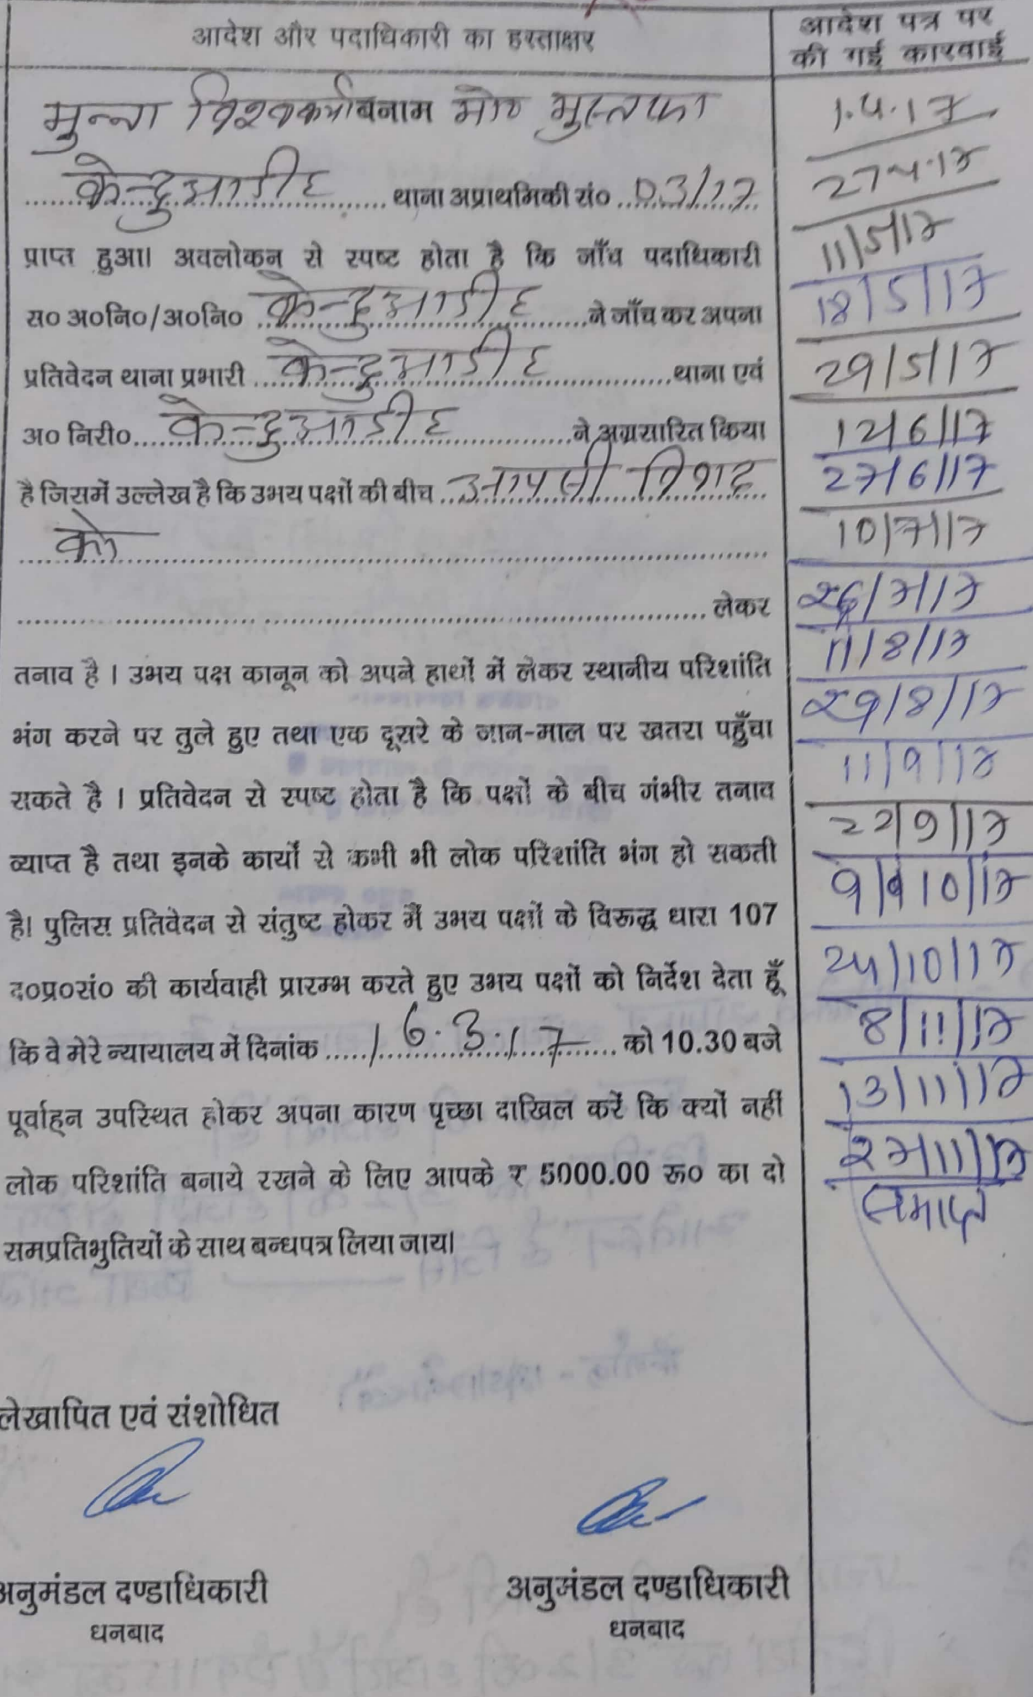 आदेश और पदाधिकारी का हस्ताक्षर
आदेश पत्र पर
की गई कारवाई
मुन्ना विश्वकर्मा बनाम मो० मुस्तफा
केन्दुआडीह थाना अप्राथमिकी सं० 03/17
प्राप्त हुआ। अवलोकन से स्पष्ट होता है कि जाँच पदाधिकारी
स० अ०नि०/अ०नि० केन्दुआडीह ने जाँच कर अपना
प्रतिवेदन थाना प्रभारी केन्दुआडीह थाना एवं
अ० निरी० केन्दुआडीह ने अग्रसारित किया
है जिसमें उल्लेख है कि उभय पक्षों की बीच आपसी विवाद
को
लेकर
तनाव है । उभय पक्ष कानून को अपने हाथों में लेकर स्थानीय परिशांति
भंग करने पर तुले हुए तथा एक दूसरे के जान-माल पर खतरा पहुँचा
सकते है । प्रतिवेदन से स्पष्ट होता है कि पक्षों के बीच गंभीर तनाव
व्याप्त है तथा इनके कार्यों से कभी भी लोक परिशांति भंग हो सकती
है। पुलिस प्रतिवेदन से संतुष्ट होकर मैं उभय पक्षों के विरूद्ध धारा 107
द०प्र०सं० की कार्यवाही प्रारम्भ करते हुए उभय पक्षों को निर्देश देता हूँ
कि वे मेरे न्यायालय में दिनांक 16.3.17 को 10.30 बजे
पूर्वाह्न उपस्थित होकर अपना कारण पृच्छा दाखिल करें कि क्यों नहीं
लोक परिशांति बनाये रखने के लिए आपके ₹ 5000.00 रू० का दो
समप्रतिभुतियों के साथ बन्धपत्र लिया जाय।
लेखापित एवं संशोधित
अनुमंडल दण्डाधिकारी
धनबाद
अनुमंडल दण्डाधिकारी
धनबाद
1.4.17
27.4.17
11/5/17
18/5/17
29/5/17
12/6/17
27/6/17
10/7/17
26/7/17
11/8/17
29/8/17
11/9/17
22/9/17
9/10/17
24/10/17
8/11/17
13/11/17
27/11/17
समाप्त